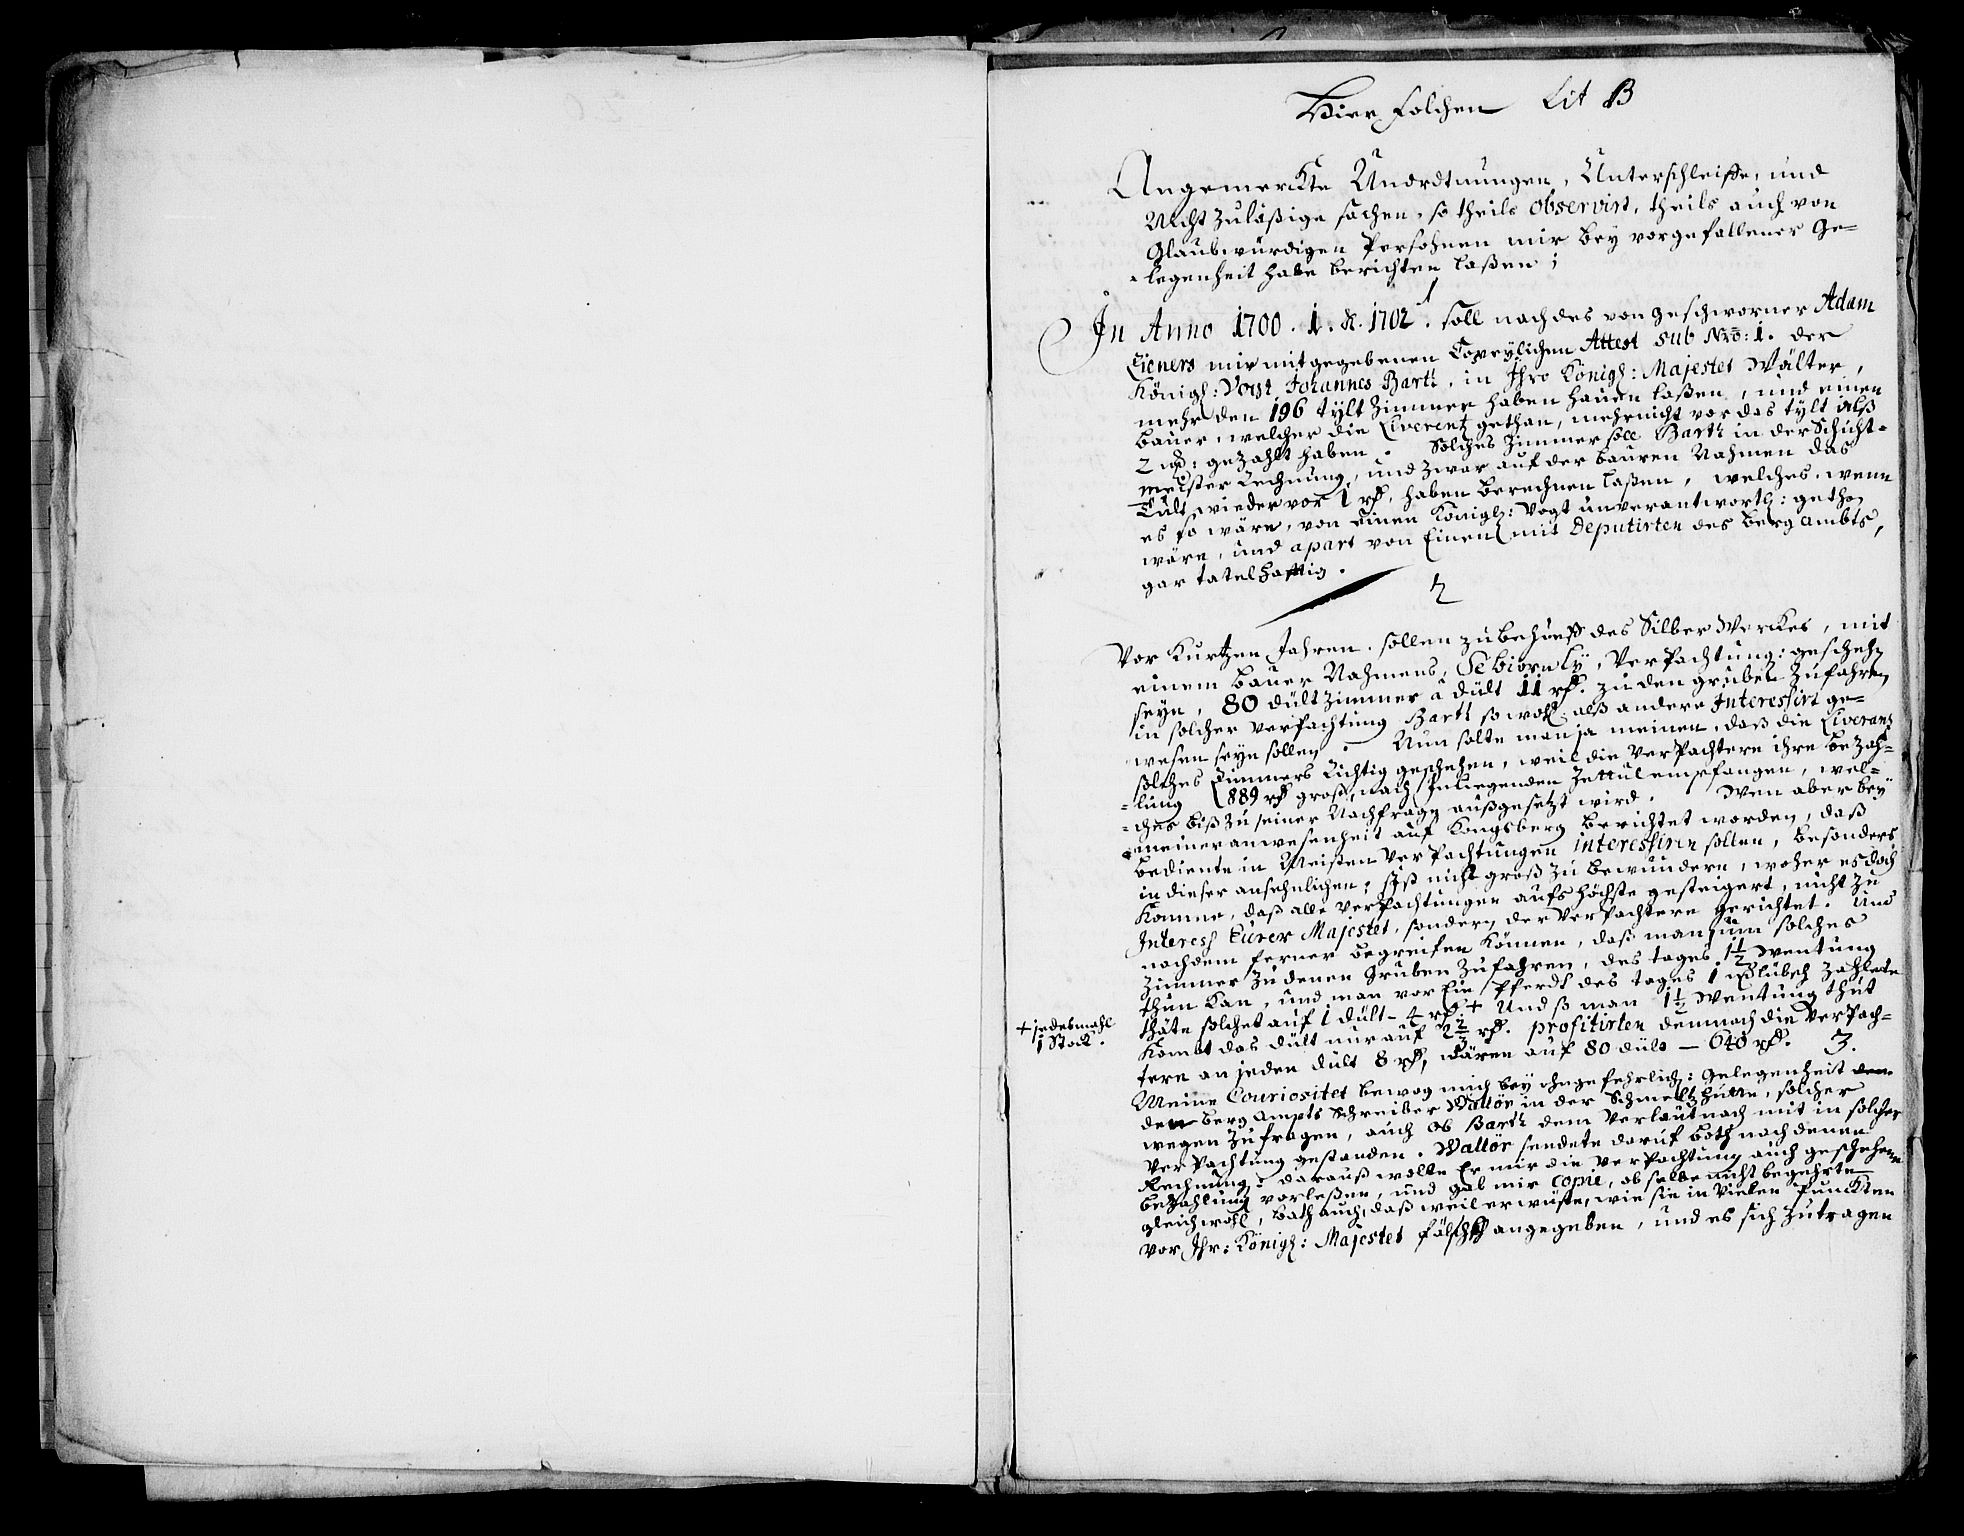 Hier folchen Lit B
Angemerckte Unordtnungen, Unterschleiffe, und
Nicht zuläßige sachen, so theils observirt, theils auch von
Glaubwürdigen Persohnen mir bey vorgefallener Ge-
legenheit habe berichten laßen;
1
In Anno 1700. 1. & 1702. soll nach des von geschworner Adam
Cieners mir mitgegebenen Copeylichen Attest sub Nro: 1. der
Königl: Vogt Johannes Barth, in Ihro Königl: Majestet Wälter,
mehr den 196 tylt Zimmer haben hauen laßen, und einen
bauer, welcher die Liverentz gethan, mehr nicht vor das tylt alß
2 : gezahlt haben. Solches Zimmer soll Barth in der Schicht-
meister Rechnung, und zwar auf der bauren Nahmen das
Tült wieder vor 1 rß. haben berechnen laßen, welches, wenn
es so wäre, von einen Königl: Vogt unverantwortl: gethan
wäre, und apart von Einen mit Deputirten des berg ambts,
gar tatelhafftig.
2
Vor kurtzen Jahren sollen zu behueff des Silber Werckes, mit
einem bauer Nahmens, Sebiörn Ly, Verpachtung: geschehn
seyn, 80 dült Zimmer à dült 11 rß. zu den gruben zu fahren
in solcher Verpachtung Barth so wohl alß andere Interessirt ge-
wesen seyn sollen. Nun solte man ja meinen, daß die Liverantz
solches Zimmers Richtig geschehen, weil die Verpachtere ihre bezah-
lung 889 rß groß, nach Inliegenden Zettul empfangen, wel-
ches biß zu seiner Nachfrage außgesetzt wird. Wen aber bey
meiner anwesenheit auf Kongsberg berichtet worden, daß
bediente in Meisten Verpachtungen interessiren sollen, besonders
in dieser ansehnlichen; Ist nicht groß zu bewundern, woher es doch
komme, daß alle Verpachtungen aufs höchste gesteigert, nicht zu
Interess Eurer Majestet, sondern der Verpachtere gerichtet. Und
nachdem ferner begreifen können, daß man um solches
Zimmer zu denen Gruben zu fahren, des tages 1½ Wentung
thun kan, und man vor Ein Pferdt des tages 1 lübsch zahlete
thäte solches auf 1 dült - 4 rß. + Und so man 1½ Wentung thut
+ jedesmahl
1 Stock.
Komt das dült nur auf 2⅔ rß. profitirten demnach die Verpach-
tere an jeden dült 8 rß, wären auf 80 dült — 640 rß. 3.
Meine Couriositet bewog mich bey ohngefehrlich: Gelegenheit
den berg ampts Schreiber Wallör in der Schmeltzhütte, solcher
wegen zu fragen, auch ob Barth dem Verlaut nach mit in solcher
Verpachtung gestanden. Wallör sendete daruf both nach denen
Rechnung: darauß wolte Er mir die Verpachtung auch geschehene
bezahlung vorleßen, und gab mir Copie, ob selbe nicht begehrte
gleichwohl, bath auch, daß weil er wüste, wie sie in vielen Puncten
vor Ihr: Königl: Majestet fälschl angegeben, und es sich zutragen